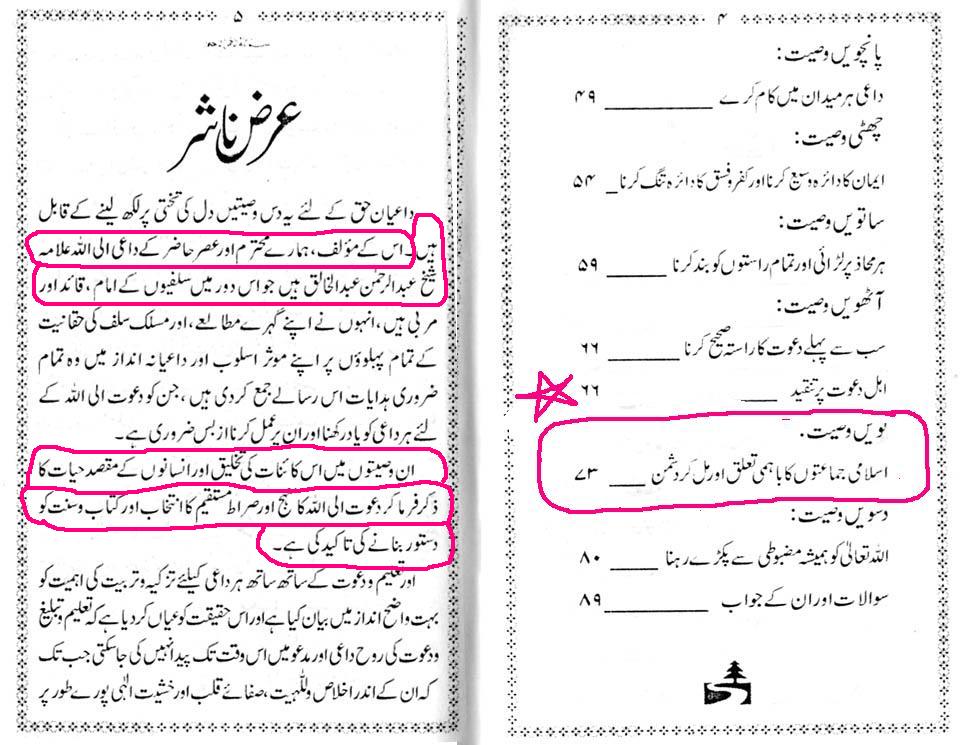 ۴
پانچویں وصیت:
داعی ہر میدان میں کام کرے ــــــــ ۴۹
چھٹی وصیت:
ایمان کا دائرہ وسیع کرنا اور کفر و فسق کا دائرہ تنگ کرنا ـ ۵۴
ساتویں وصیت:
ہر محاذ پر لڑائی اور تمام راستوں کو بند کرنا ــــــــ ۵۹
آٹھویں وصیت:
سب سے پہلے دعوت کا راستہ صحیح کرنا ــــــــ ۶۶
اہل دعوت پر تنقید ــــ ۶۶
نویں وصیت:
اسلامی جماعتوں کا باہمی تعلق اور مل کر دشمن ــــ ۷۳
دسویں وصیت:
اللہ تعالیٰ کو ہمیشہ مضبوطی سے پکڑے رہنا ــــــــ ۸۰
سوالات اور ان کے جواب ــــــــ ۸۹
۵
عرض ناشر
داعیان حق کے لئے یہ دس وصیتیں دل کی تختی پر لکھ لینے کے قابل
ہیں۔ اس کے مؤلف، ہمارے محترم اور عصر حاضر کے داعی الی اللہ علامہ
شیخ عبدالرحمٰن عبدالخالق ہیں جو اس دور میں سلفیوں کے امام، قائد اور
مربی ہیں، انہوں نے اپنے گہرے مطالعے، اور مسلک سلف کی حقانیت
کے تمام پہلوؤں پر اپنے موثر اسلوب اور داعیانہ انداز میں وہ تمام
ضروری ہدایات اس رسالے جمع کردی ہیں، جن کو دعوت الی اللہ کے
لئے ہر داعی کو یاد رکھنا اور ان پر عمل کرنا از بس ضروری ہے۔
ان وصیتوں میں اس کائنات کی تخلیق اور انسانوں کے مقصد حیات کا
ذکر فرما کر دعوت الی اللہ کا نہج اور صراط مستقیم کا انتخاب اور کتاب و سنت کو
دستور بنانے کی تاکید کی ہے۔
اور تعلیم و دعوت کے ساتھ ساتھ ہر داعی کیلئے تزکیہ و تربیت کی اہمیت کو
بہت واضح انداز میں بیان کیا ہے اور اس حقیقت کو عیاں کردیا ہے کہ تعلیم و تبلیغ
و دعوت کی روح داعی اور مدعو میں اس وقت تک پیدا نہیں کی جاسکتی جب تک
کہ ان کے اندر اخلاص وللّٰہیت، صفائے قلب اور خشیت الٰہی پورے طور پر